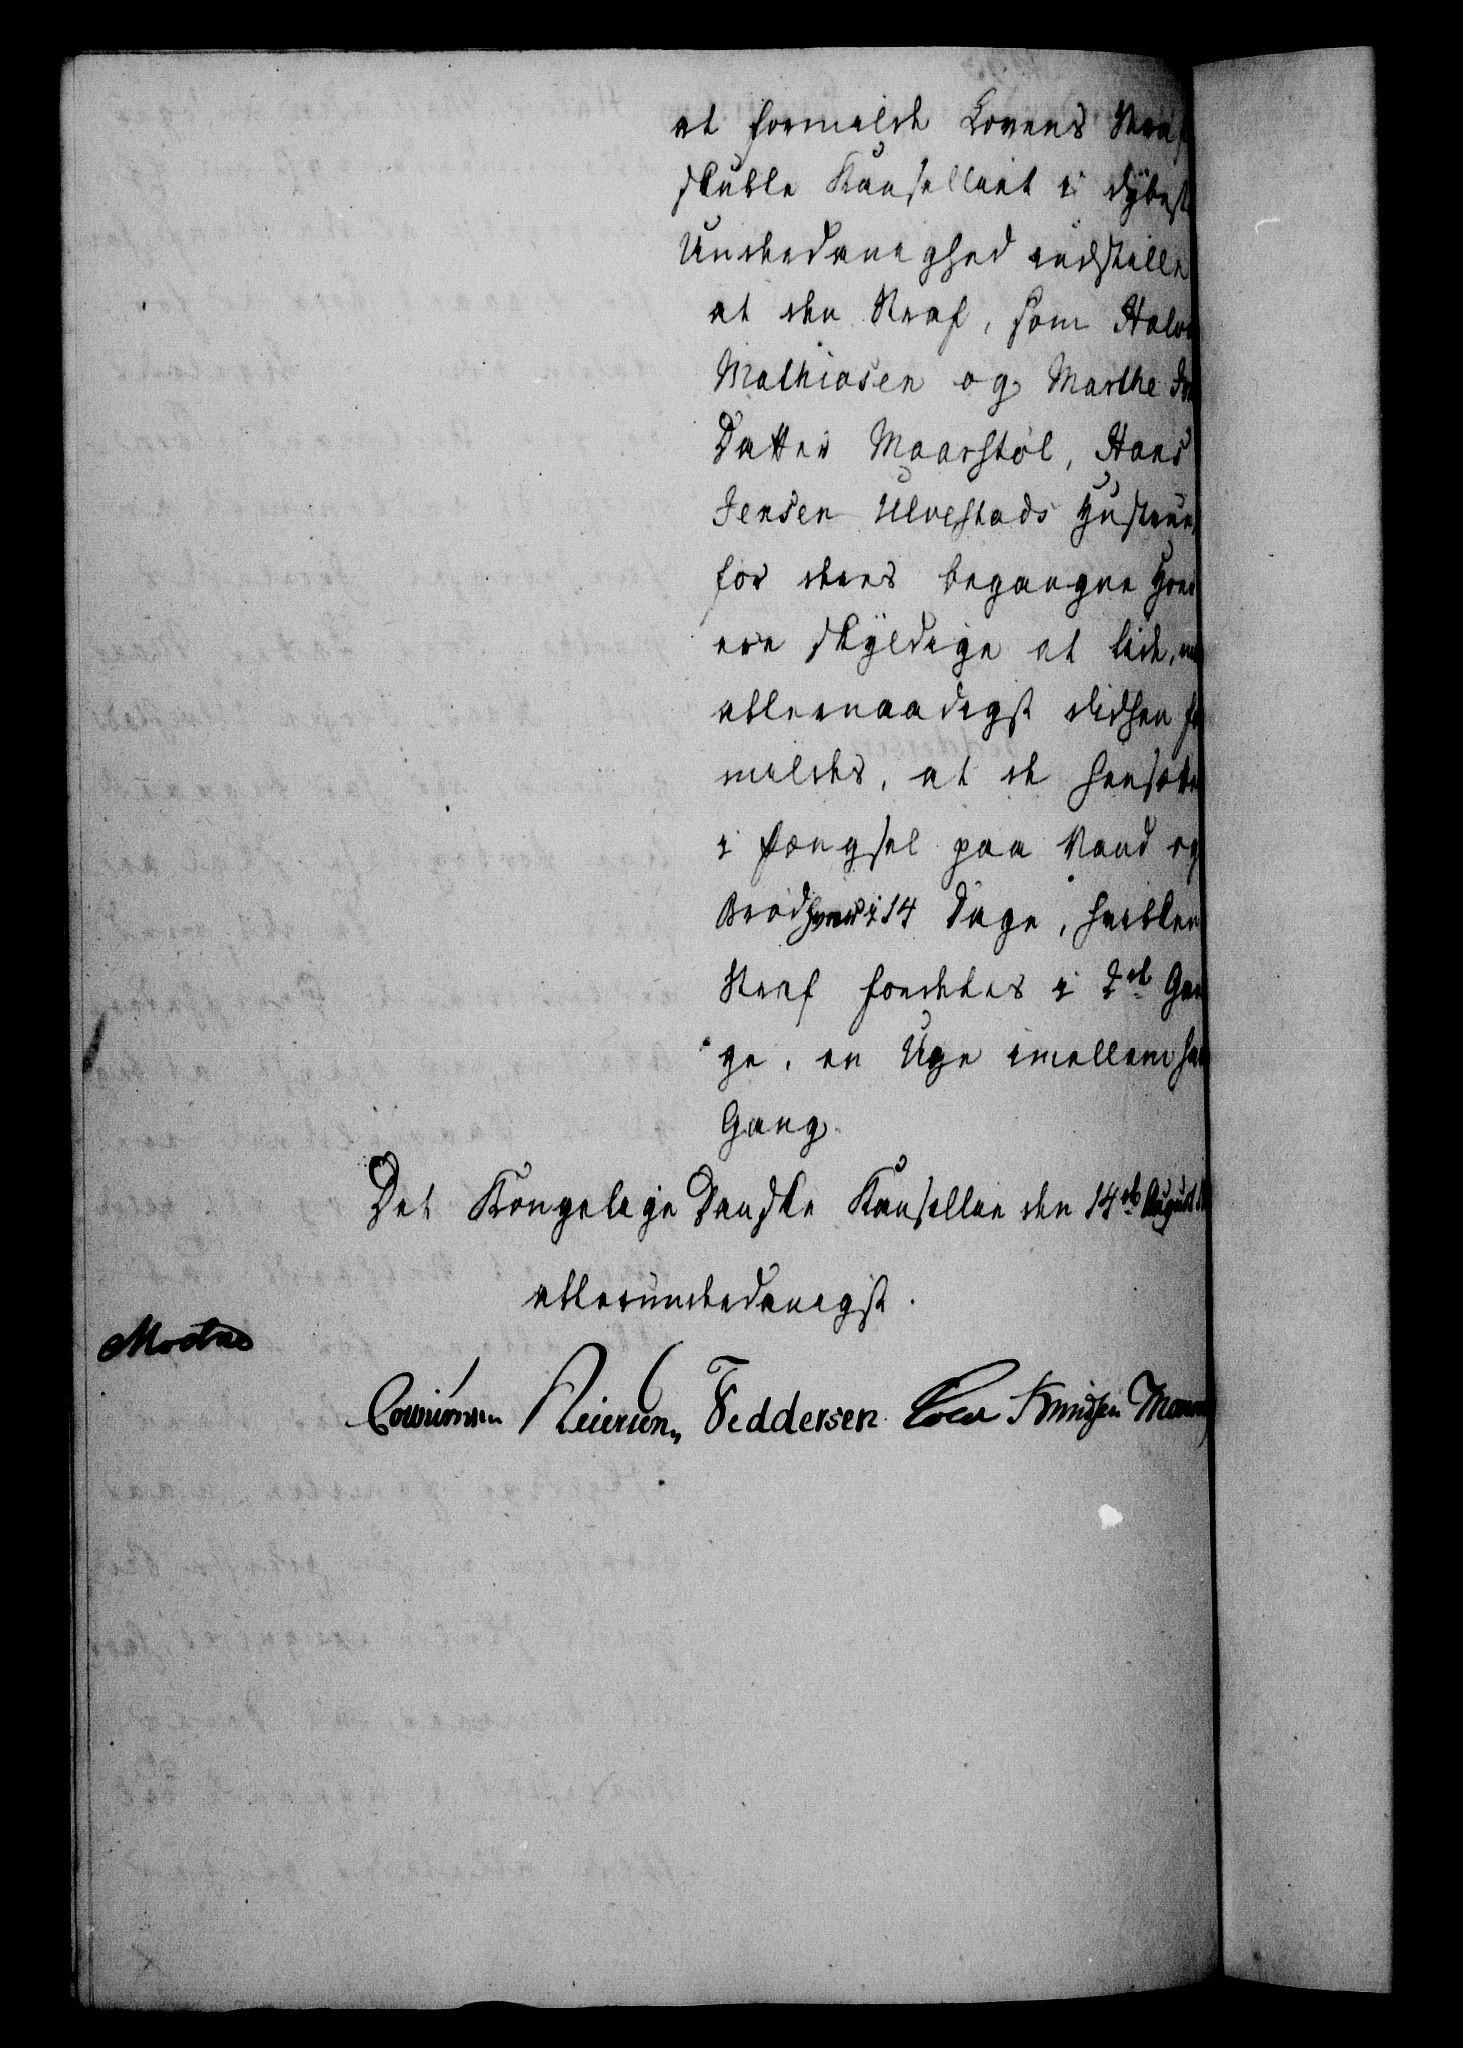 at formilde Lovens Straf
skulle Kanselliet i dÿbest
Underdanighed indstille
at den Straf, som Halvo
Mathiasen og Marthe
Datter Maarstøl, Hans
Jensen Ulvestads Hustrue,
for deres begangne Hoer
ere skÿldige at lide, maa
allernaadigst derhen for
mildes, at de hensættes
i Fængsel paa Vand og
Brød hver i 14 Dage, hvilken
Straf fordeles i 2de Gan
ge, en Uge imellem hver
Gang.
Det Kongelige Danske Kansellie den 14de August
allerunderdanigst.
Moltke
Cowiumsen Reiersen, Feddersen Knudsen